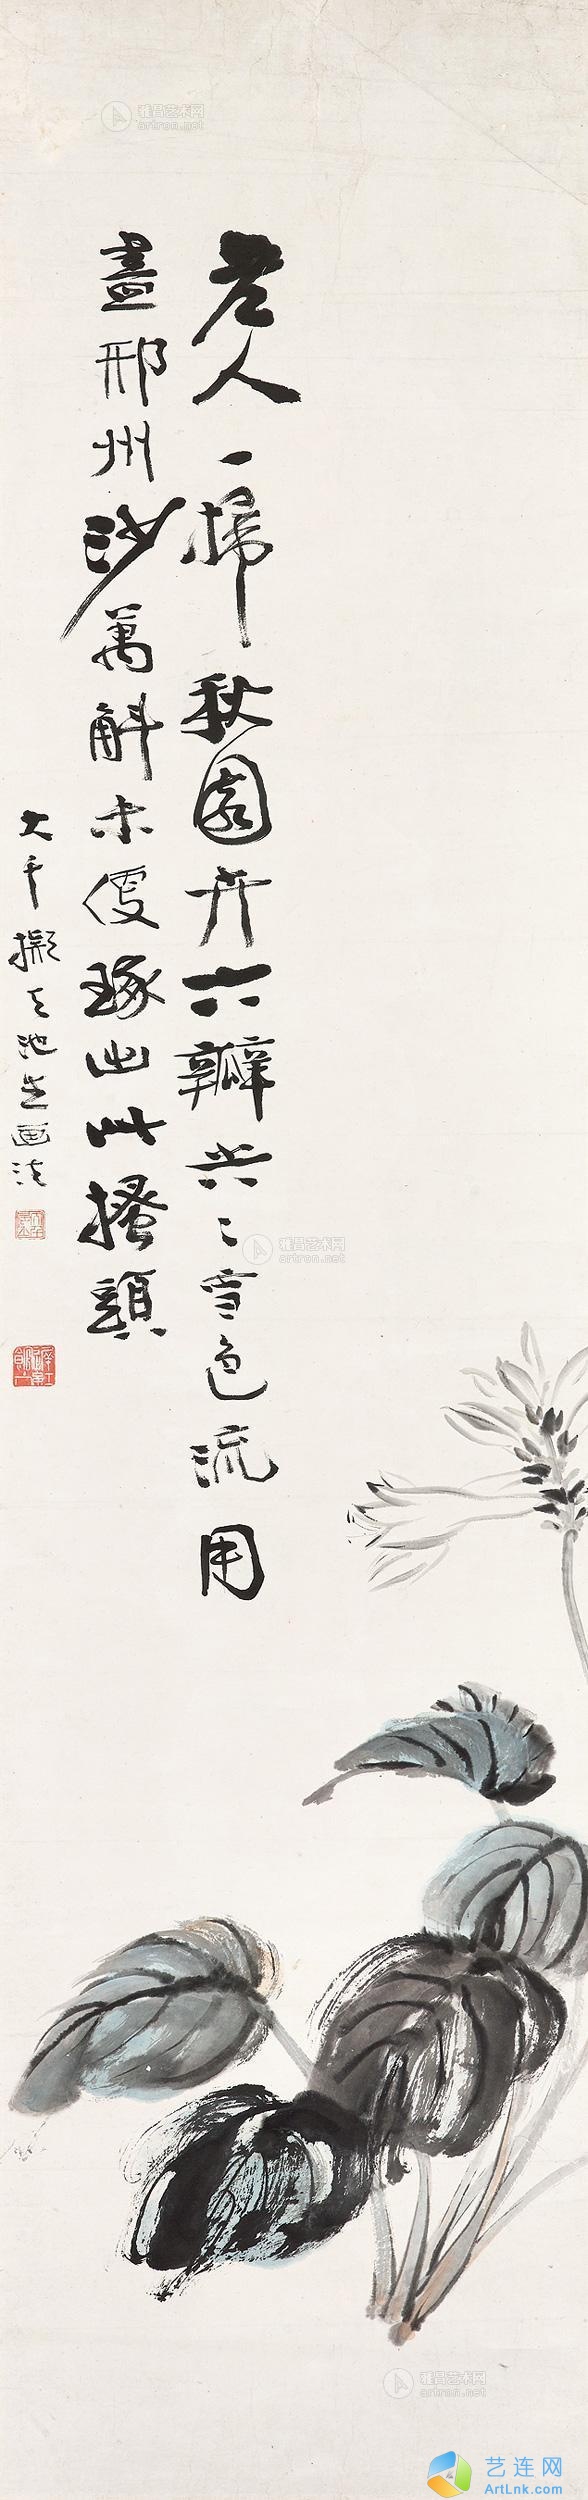 雅昌艺术网
artron.net
老人一掃秋園卉六瓣尖〻雪色流用
盡邢州沙萬斛未便琢出此搔頭
大千擬天池生画法
雅昌艺术网
artron.net
雅昌艺术网
artron.net
艺连网
ArtLnk.com